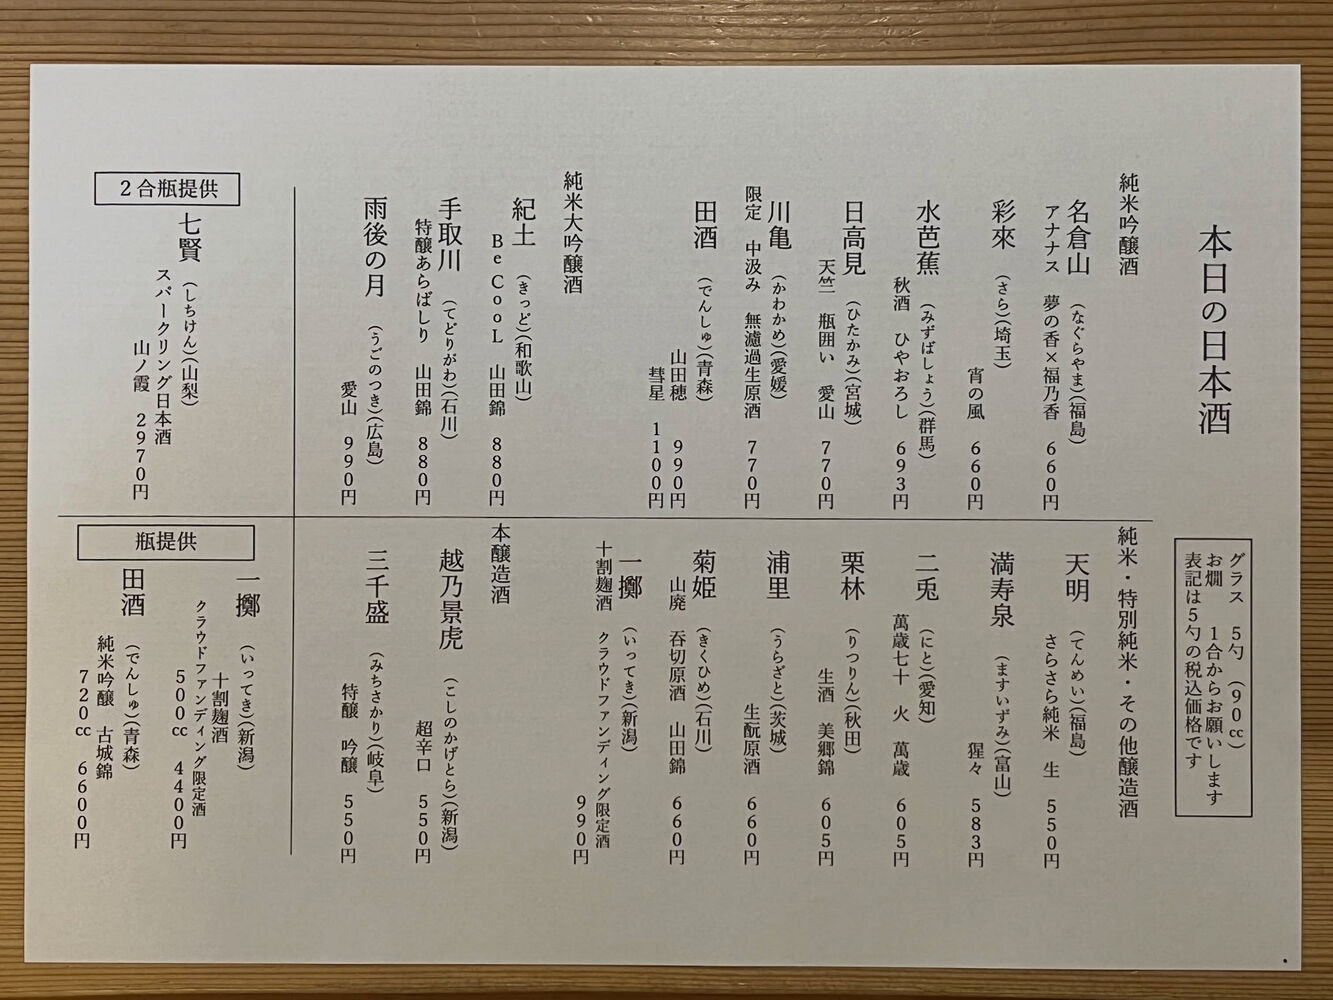 本日の日本酒
グラス　5勺　(90cc)
お燗　1合からお願いします
表記は5勺の税込価格です
純米吟醸酒
名倉山　(なぐらやま)(福島)
アナナス　夢の香×福乃香　660円
彩來　(さら)(埼玉)
宵の風　660円
水芭蕉　(みずばしょう)(群馬)
秋酒　ひやおろし　693円
日高見　(ひたかみ)(宮城)
天竺　瓶囲い　愛山　770円
川亀　(かわかめ)(愛媛)
限定　中汲み　無濾過生原酒　770円
田酒　(でんしゅ)(青森)
山田穂　990円
彗星　1100円
純米大吟醸酒
紀土　(きっど)(和歌山)
BeCooL　山田錦　880円
手取川　(てどりがわ)(石川)
特醸あらばしり　山田錦　880円
雨後の月　(うごのつき)(広島)
愛山　990円
純米・特別純米・その他醸造酒
天明　(てんめい)(福島)
さらさら純米　生　550円
満寿泉　(ますいずみ)(富山)
猩々　583円
二兎　(にと)(愛知)
萬歳七十　火　萬歳　605円
栗林　(りつりん)(秋田)
生酒　美郷錦　605円
浦里　(うらざと)(茨城)
生酛原酒　660円
菊姫　(きくひめ)(石川)
山廃　呑切原酒　山田錦　660円
一擲　(いってき)(新潟)
十割麹酒　クラウドファンディング限定酒
990円
本醸造酒
越乃景虎　(こしのかげとら)(新潟)
超辛口　550円
三千盛　(みちさかり)(岐阜)
特醸　吟醸　550円
2合瓶提供
七賢　(しちけん)(山梨)
スパークリング日本酒
山ノ霞　2970円
瓶提供
一擲　(いってき)(新潟)
十割麹酒
クラウドファンディング限定酒
500cc　4400円
田酒　(でんしゅ)(青森)
純米吟醸　古城錦
720cc　6600円